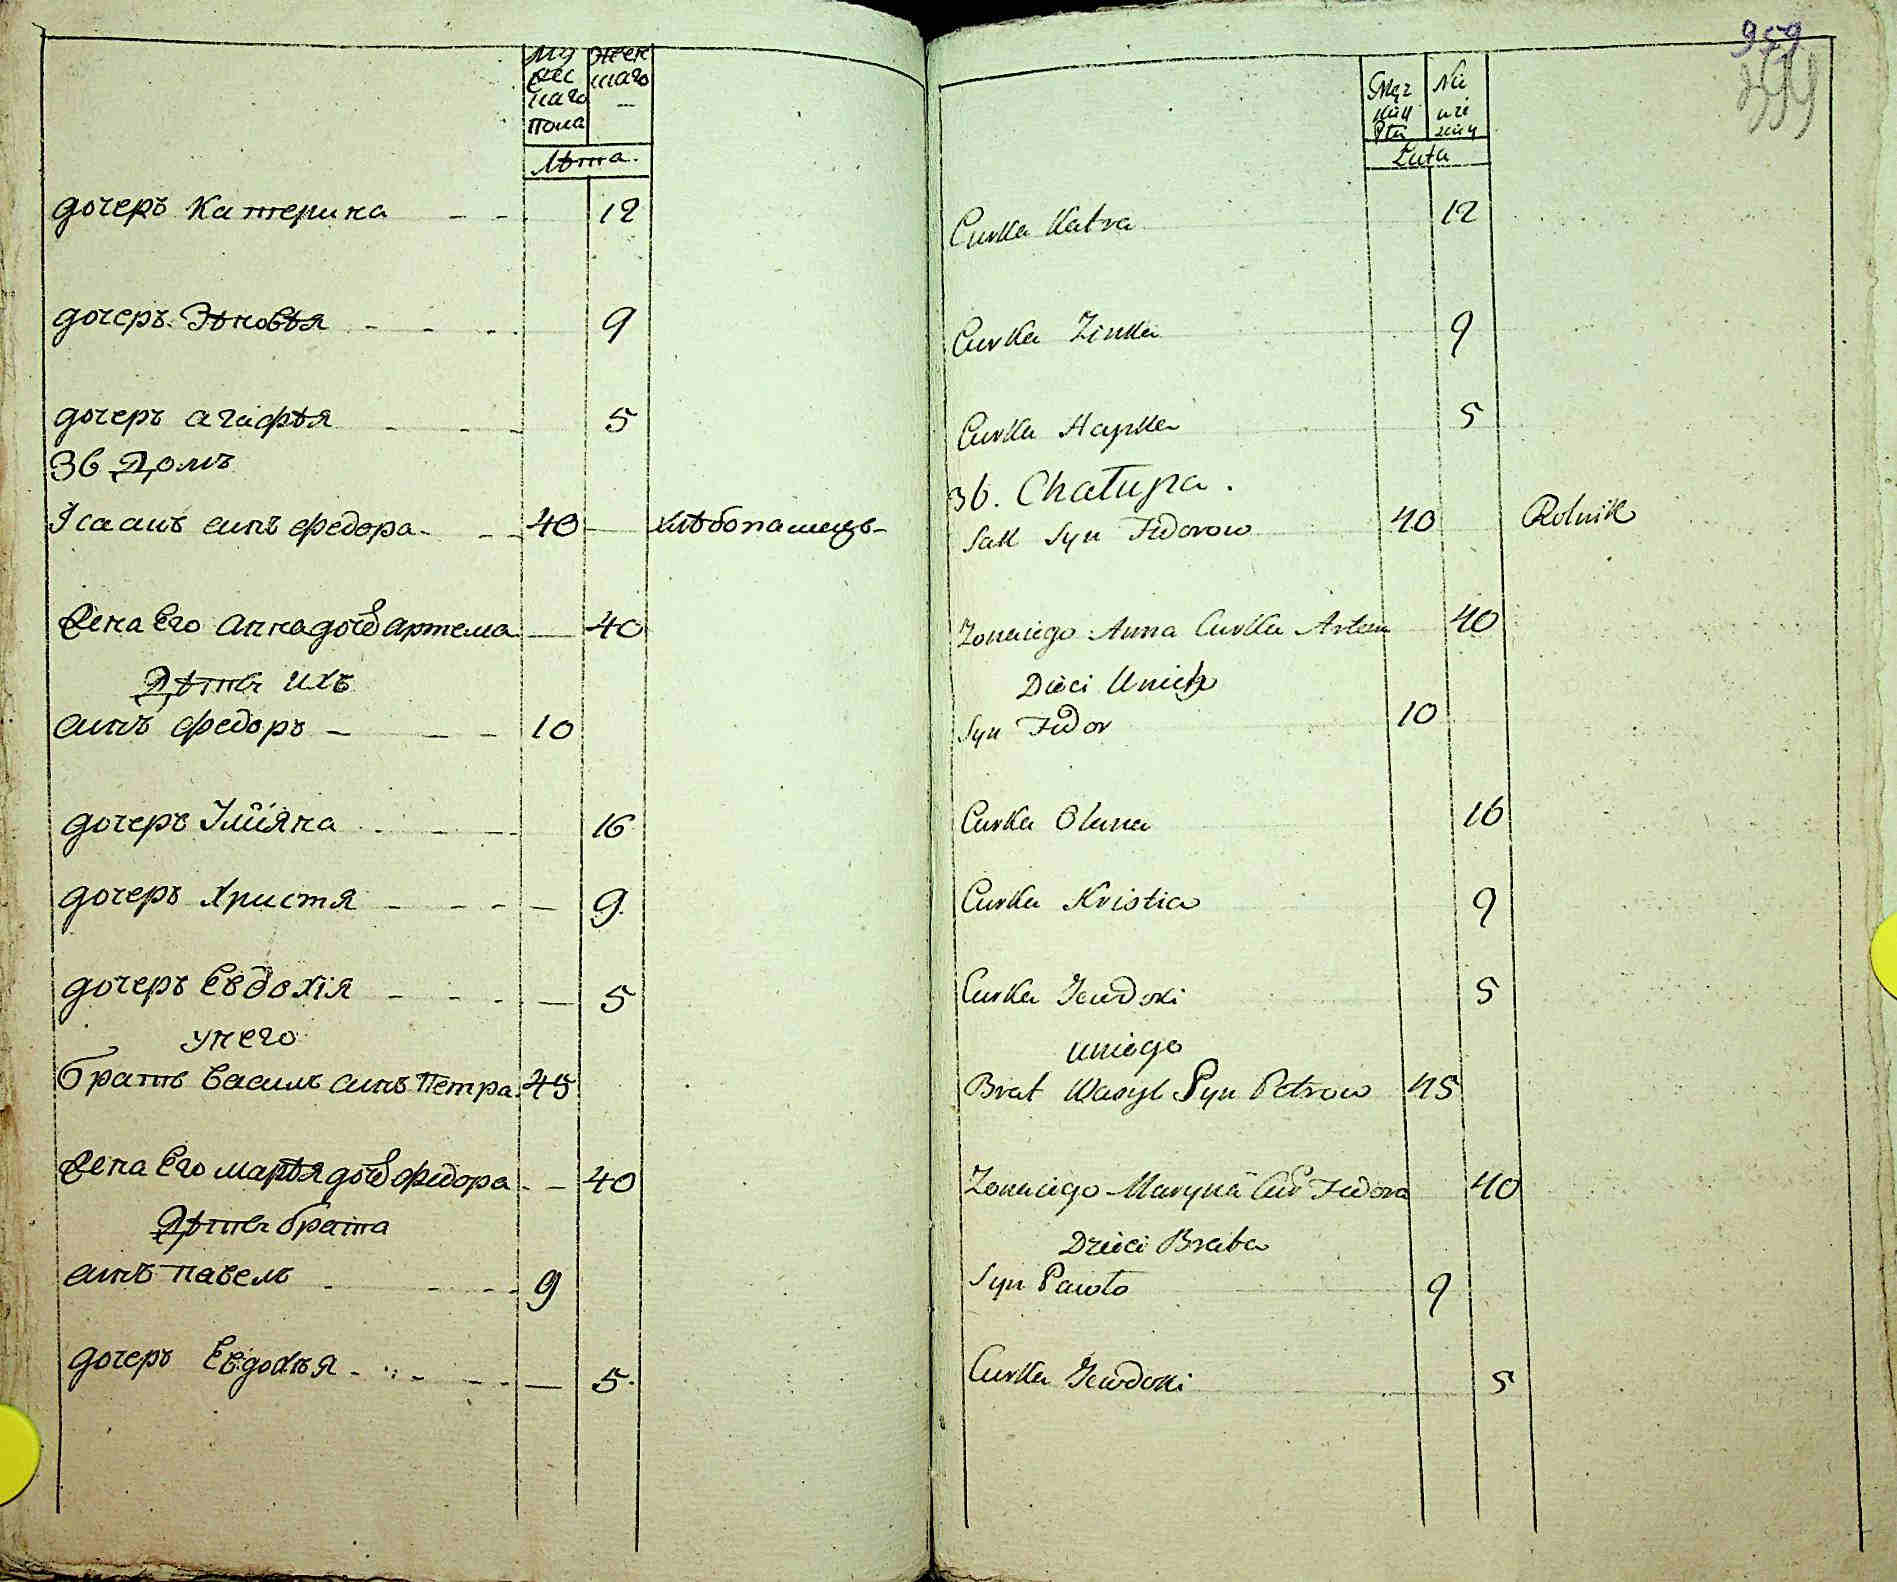 му жес каго пола | женскаго
Лѣта.
дочеръ Катерина 12
дочеръ Зѣновѣя 9
дочеръ агафѣя 5
36 Домъ
Ісаакъ синъ федора 40 хлѣбопашецъ
Жена Его анна дочъ артема 40
Дѣти ихъ
синъ федоръ 10
дочеръ Улияна 16
дочеръ Христя 9
дочеръ Евдохія 5
у него
братъ василь синъ Петра 45
Жена Его марѣя дочъ федора 40
Дѣти брата
синъ павелъ 9
дочеръ Евдохѣя 5
959
Męz kiii Płci
Łata
Curka Katra 12
Curka Zinka 9
Curka Hapka 5
36. Chatupa.
Sak Syn Fedorow 40 Rolnik
Zona iego Anna Curka Artem 40
Dzieci Unich
Syn Fedor 10
Curka Olana 16
Curka Kristia 9
Curka Jewdoki 5
Uniego
Brat Wasyl Syn Petrow 45
Zona iego Maryna Cur Fedora 40
Dzieci Brata
Syn Pawło 9
Curka Jewdoki 5